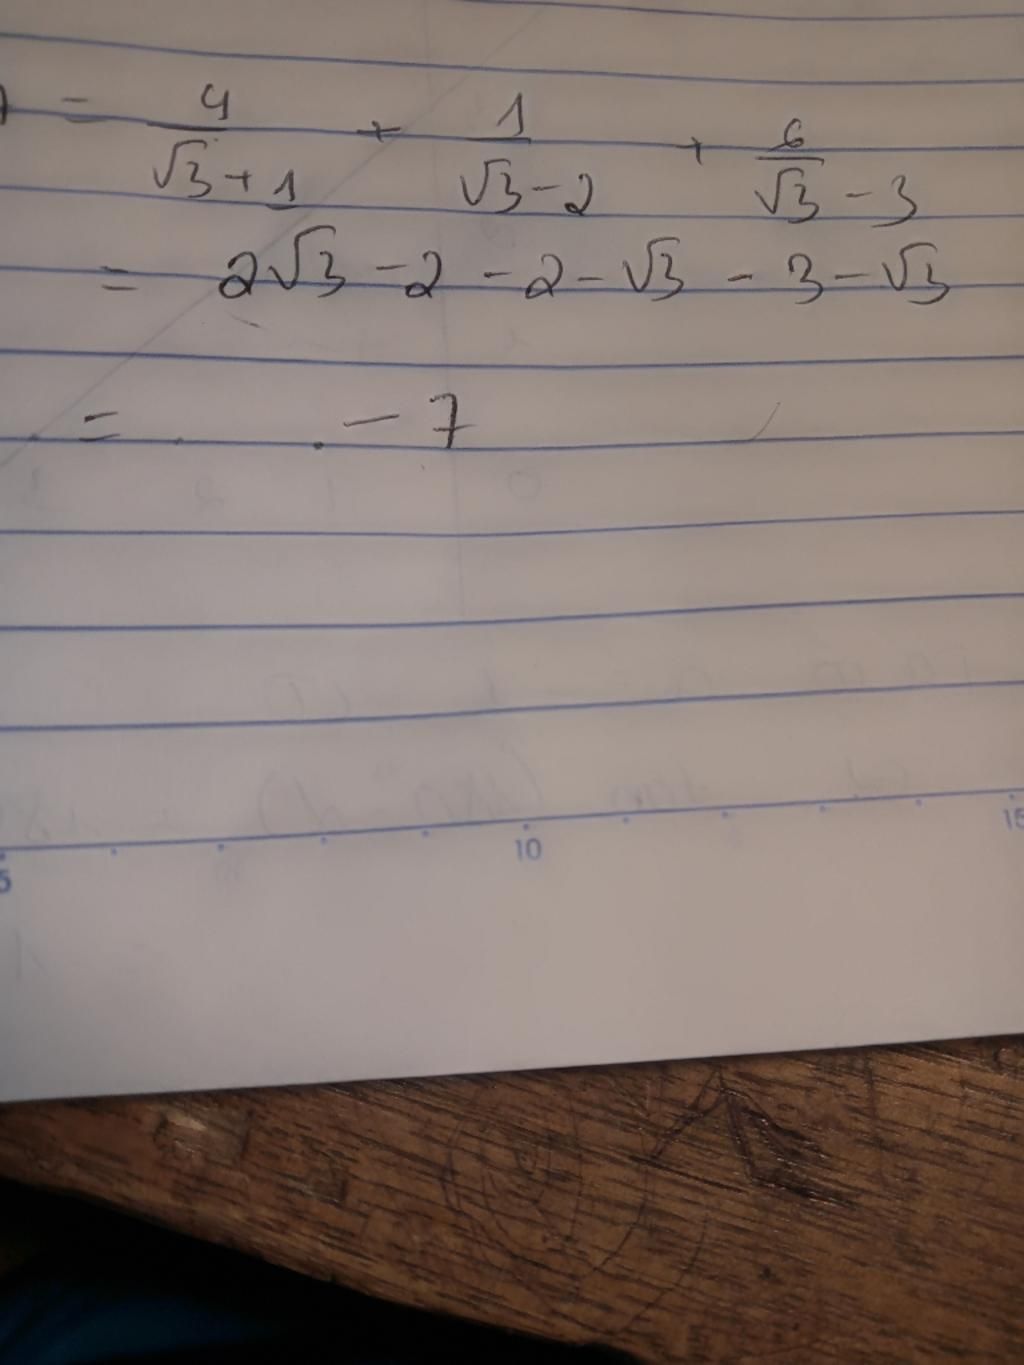 = 4/(√3+1) + 1/(√3-2) + 6/(√3-3)
= 2√3 -2 -2-√3 - 3-√3
= -7
5 10 15